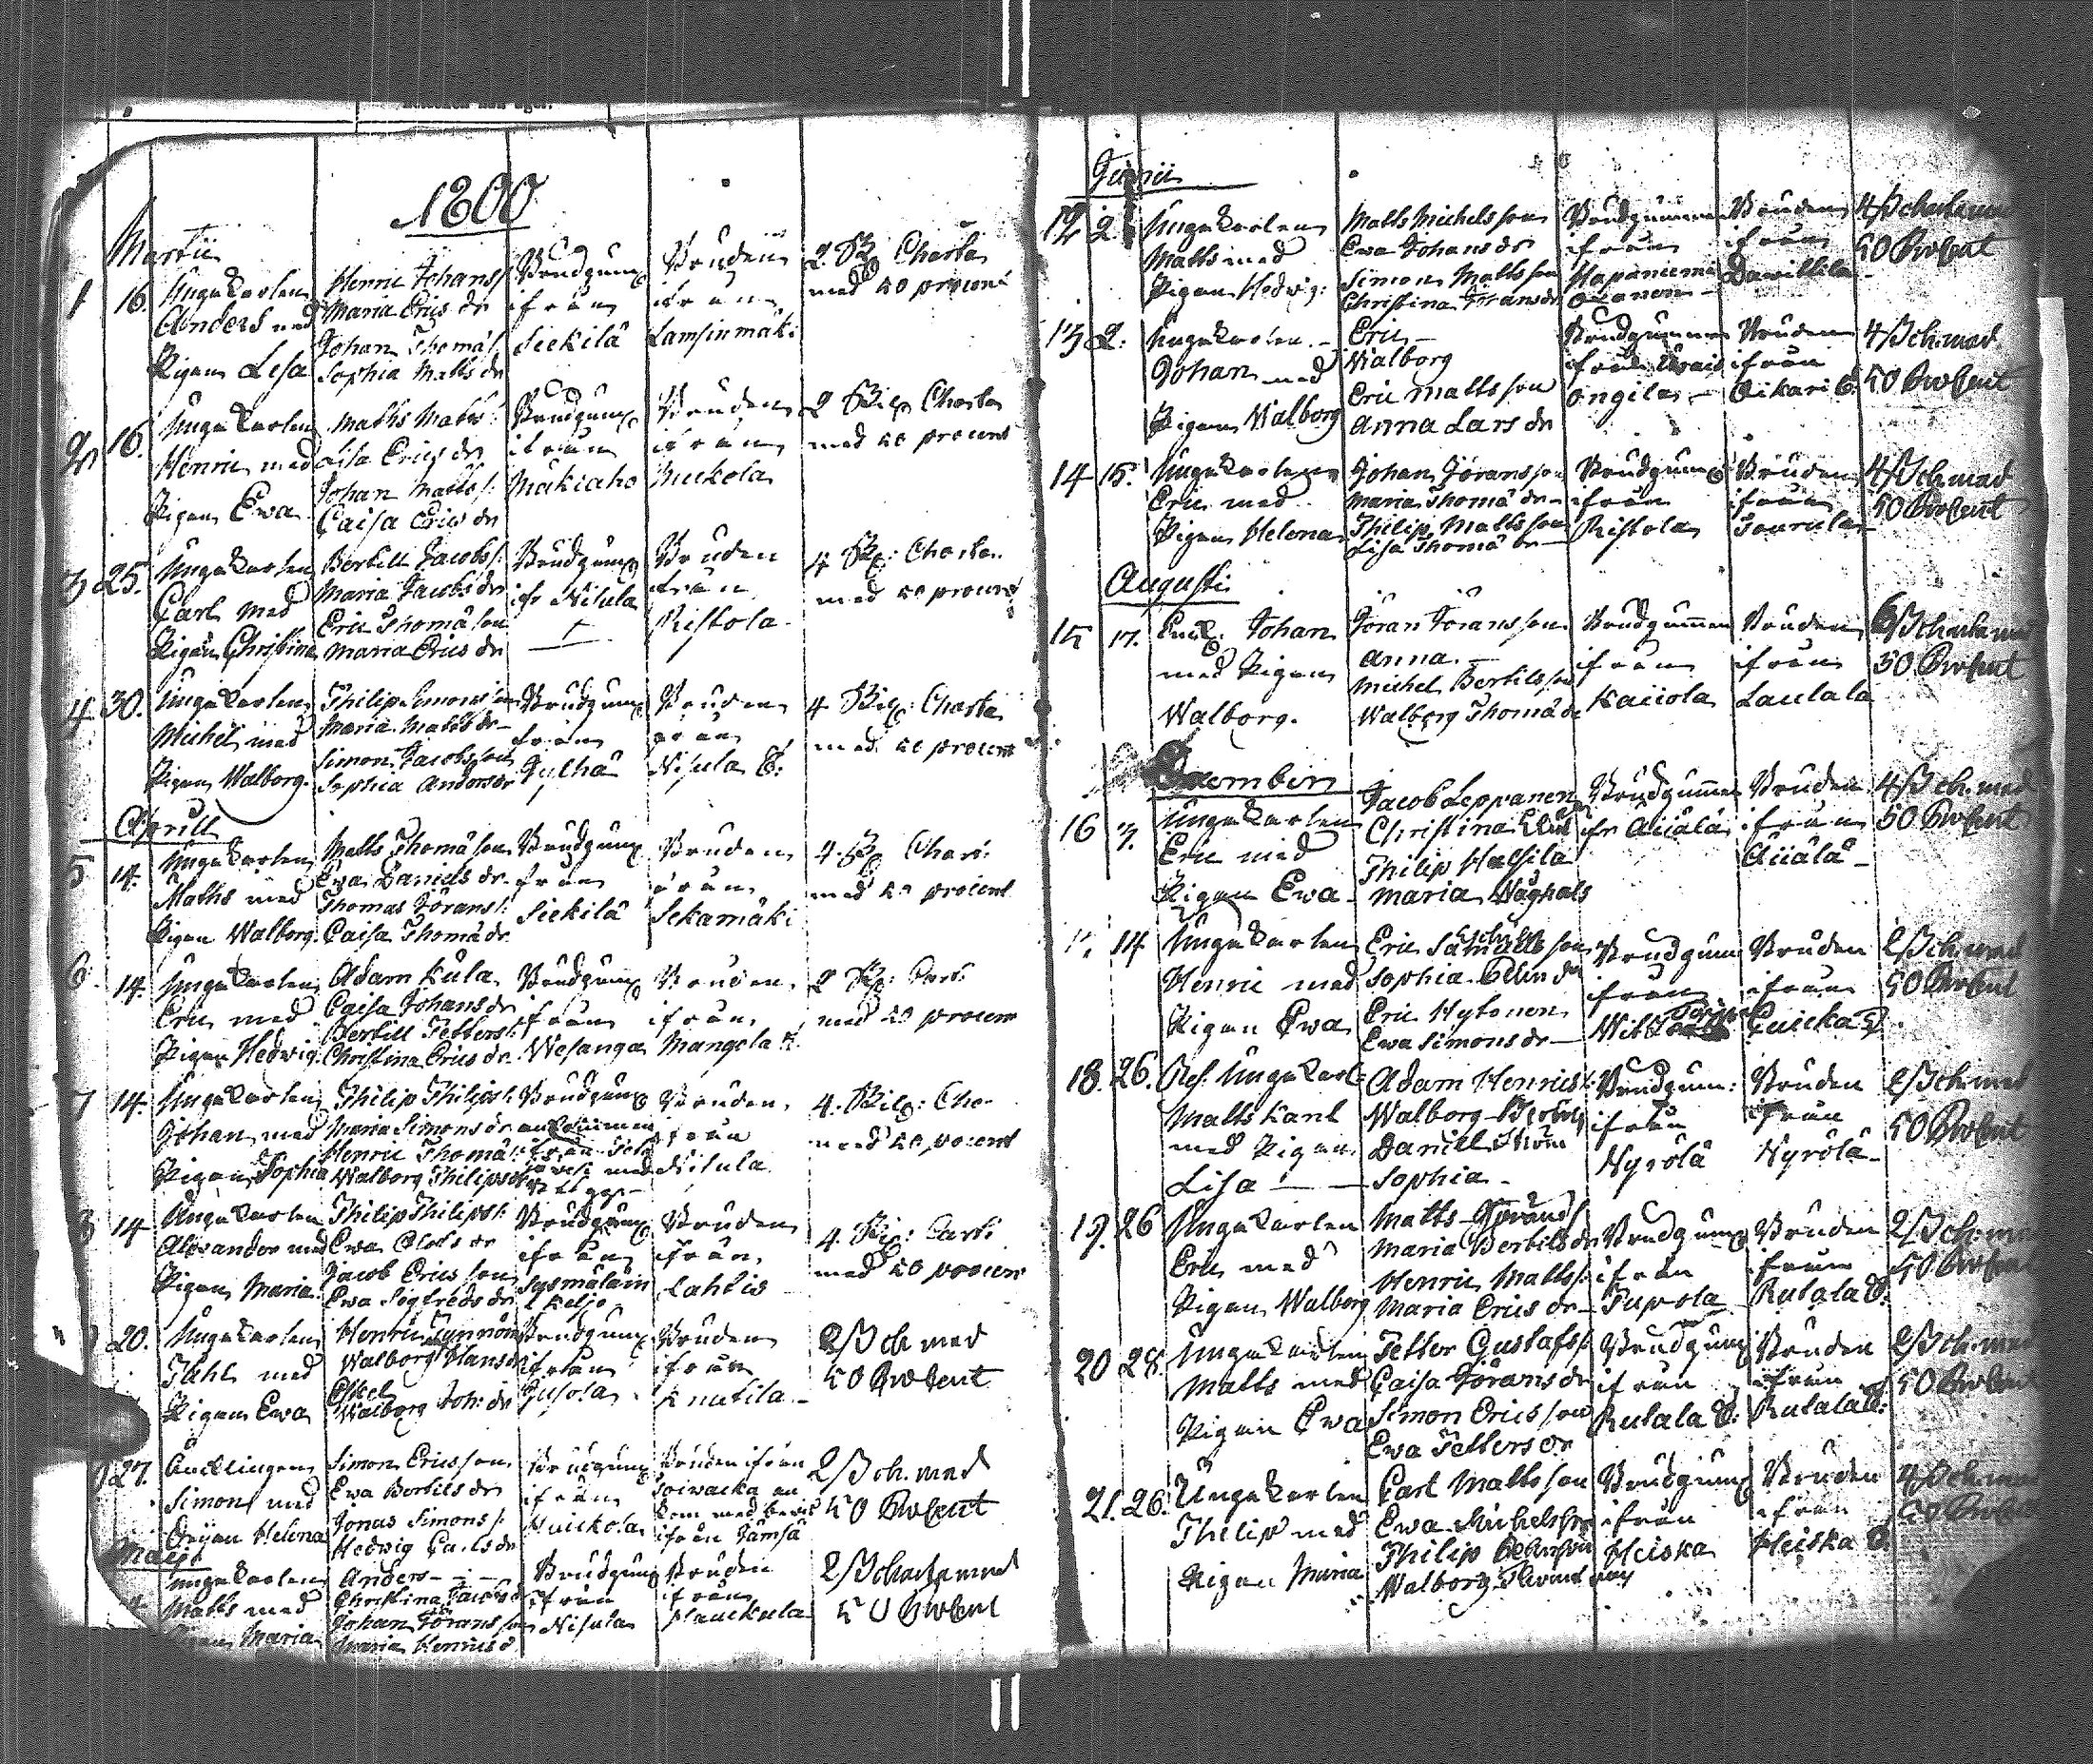 1800
Martii
1 16. Ungekarlen Anders med Pigan Lisa
Henric Johans/:
Maria Erics dr
Johan Thomas/:
Sophia Matts dr
Brudgum/: ifrån Siekilä
Bruden ifrån Lamsinmäki
2 Sk Charta med 50 procent
2 16. Ungekarlen Henric med Pigan Ewa
Maths Matts/:
Lisa Erics dr
Johan Matts/:
Caisa Erics dr
Brudgum/: ifrån Mäkiaho
Bruden ifrån Muckola
2 Sk: Charta med 50 procent
3 25. Ungekarlen Carl med Pigan Christina
Bertill Jacobs/:
Maria Jacobs dr
Eric Thomä son
Maria Erics dr
Brudgum/: ifr Nisula
Bruden ifrån Ristola
4 Sk: Charta med 50 procent
4 30. Ungekarlen Michel med Pigan Walborg.
Philip Simons son
Maria Matts dr
Simon Jacobs son
Sophia Anders dr
Brudgum/: ifrån Julhä
Bruden ifrån Nisula B:
4 Sk: Charta med 50 procent
Aprill
5 14. Ungekarlen Maths med Pigan Walborg.
Matts Thomä son
Ewa Daniels dr
Thomas Jörans/:
Caisa Thomä dr
Brudgum/: ifrån Siekilä
Bruden ifrån Sekamäki
4 Sk Chart: med 50 procent
6. 14. Ungekarlen Eric med Pigan Hedwig
Adam Kula
Caisa Johans dr
Bertill Petters/:
Christina Erics dr
Brudgum/: ifrån Wesanga
Bruden ifrån Mangola
2 Sk: Cart: med 50 procent
7 14. Ungekarlen Johan med Pigan Sophia
Philip Philips/:
Maria Simons dr
Henric Thomä/:
Walborg Philips dr
Brudgum/:
Bruden ifrån Nisula
4. Sk: Cha. med 50 procent
8 14 Ungekarlen Alexander med Pigan Maria.
Philip Philips/:
Ewa Olofs dr
Jacob Erics son
Ewa Sigfreds dr
Brudgum/: ifrån Sysmälain
Bruden ifrån Lahtis
4. Sk: Cart: med 50 procent
20. Ungekarlen med Pigan Ewa
Henric
Walborg Hans dr
Eskel
Walborg Joh: dr
Brudgum/: ifrån Jusola
Bruden ifrån Knutila
2 Sk ch med 50 Procent
27. Enklingen Simon med Enkan Helena
Simon Erics son
Ewa Bertils dr
Jonas Simons/:
Hedwig Carls dr
Brudgum/: ifrån Nuickola
Bruden ifrån Soiwacka an kom med bewis ifrån Jämsä
2 Sk ch. med 50 Procent
Maji
Ungekarlen Matts med Pigan Maria
Anders
Christina Jacobs dr
Johan Jörans son
Maria Henrics d
Brudgum ifrån Nisula
Bruden ifrån Hauckula
2 Sk charta med 50 Procent
Junii
12 2. Ungekarlen Matts med Pigan Hedwig:
Matts Michels son
Ewa Johans dr
Simon Matts son
Christina Jörans dr
Brudgummen ifrån Hapaniemi
Bruden ifrån
4 Sk charta med 50 Procent
13 2. Ungekarlen Johan med Pigan Walborg
Eric
Walborg
Eric Matts son
Anna Lars dr
Brudgummen ifrån
Bruden ifrån Oikari B.
4 Sk ch. med 50 Procent
14 15. Ungekarlen Eric med Pigan Helena
Johan Jörans son
Maria Thomä dr
Philip Matts son
Lisa Thomä dr
Brudgum/: ifrån Ristola
Bruden ifrån Tourula
4 Sk ch med 50 Procent
Augusti
15 17. Johan med Pigan Walborg.
Jöran Jörans son
Anna.
Michel Bertils son
Walborg Thomä dr
Brudgummen ifrån Kaiiola
Bruden ifrån Laulala
6 Sk charta med 50 Procent
December
16 7. Ungekarlen Eric med Pigan Ewa
Jacob Leppanen
Christina
Philip Halsila
Maria Någhals
Brudgummen ifr Aiiälä
Bruden ifrån Aiiälä
4 Sk ch. med 50 Procent
14 Ungekarlen Henric med Pigan Ewa
Eric
Sophia
Eric Hytonen
Ewa Simons dr
Brudgum ifrån
Bruden ifrån
2 Sk ch. med 50 Procent
18. 26. Ref. Ungekarl: Matts Kant med Pigan Lisa
Adam Henrics/:
Walborg
Daniell Ström
Sophia
Brudgum: ifrån Nyrölä
Bruden ifrån Nyrölä
2 Sk ch med 50 Procent
19. 26 Ungekarlen Eric med Pigan Walborg
Matts Jörans/
Maria Bertils dr
Henric Matts/:
Maria Erics dr
Brudgum/: ifrån Tupola
Bruden ifrån Rutala B.
2 Sk ch: med 50 Procent
20 28. Ungekarlen Matts med Pigan Ewa
Petter Gustafs/:
Caisa Jörans dr
Simon Erics son
Ewa Petters dr
Brudgum/: ifrån Rutala B:
Bruden ifrån Rutala B:
2 Sk ch. med 50 Procent
21. 26. Ungekarlen Philip med Pigan Maria
Carl Matts son
Ewa Michels
Philip
Walborg
Brudgum/: ifrån Heiska
Bruden ifrån Heiska B.
4 Sk ch. med 50 Procent